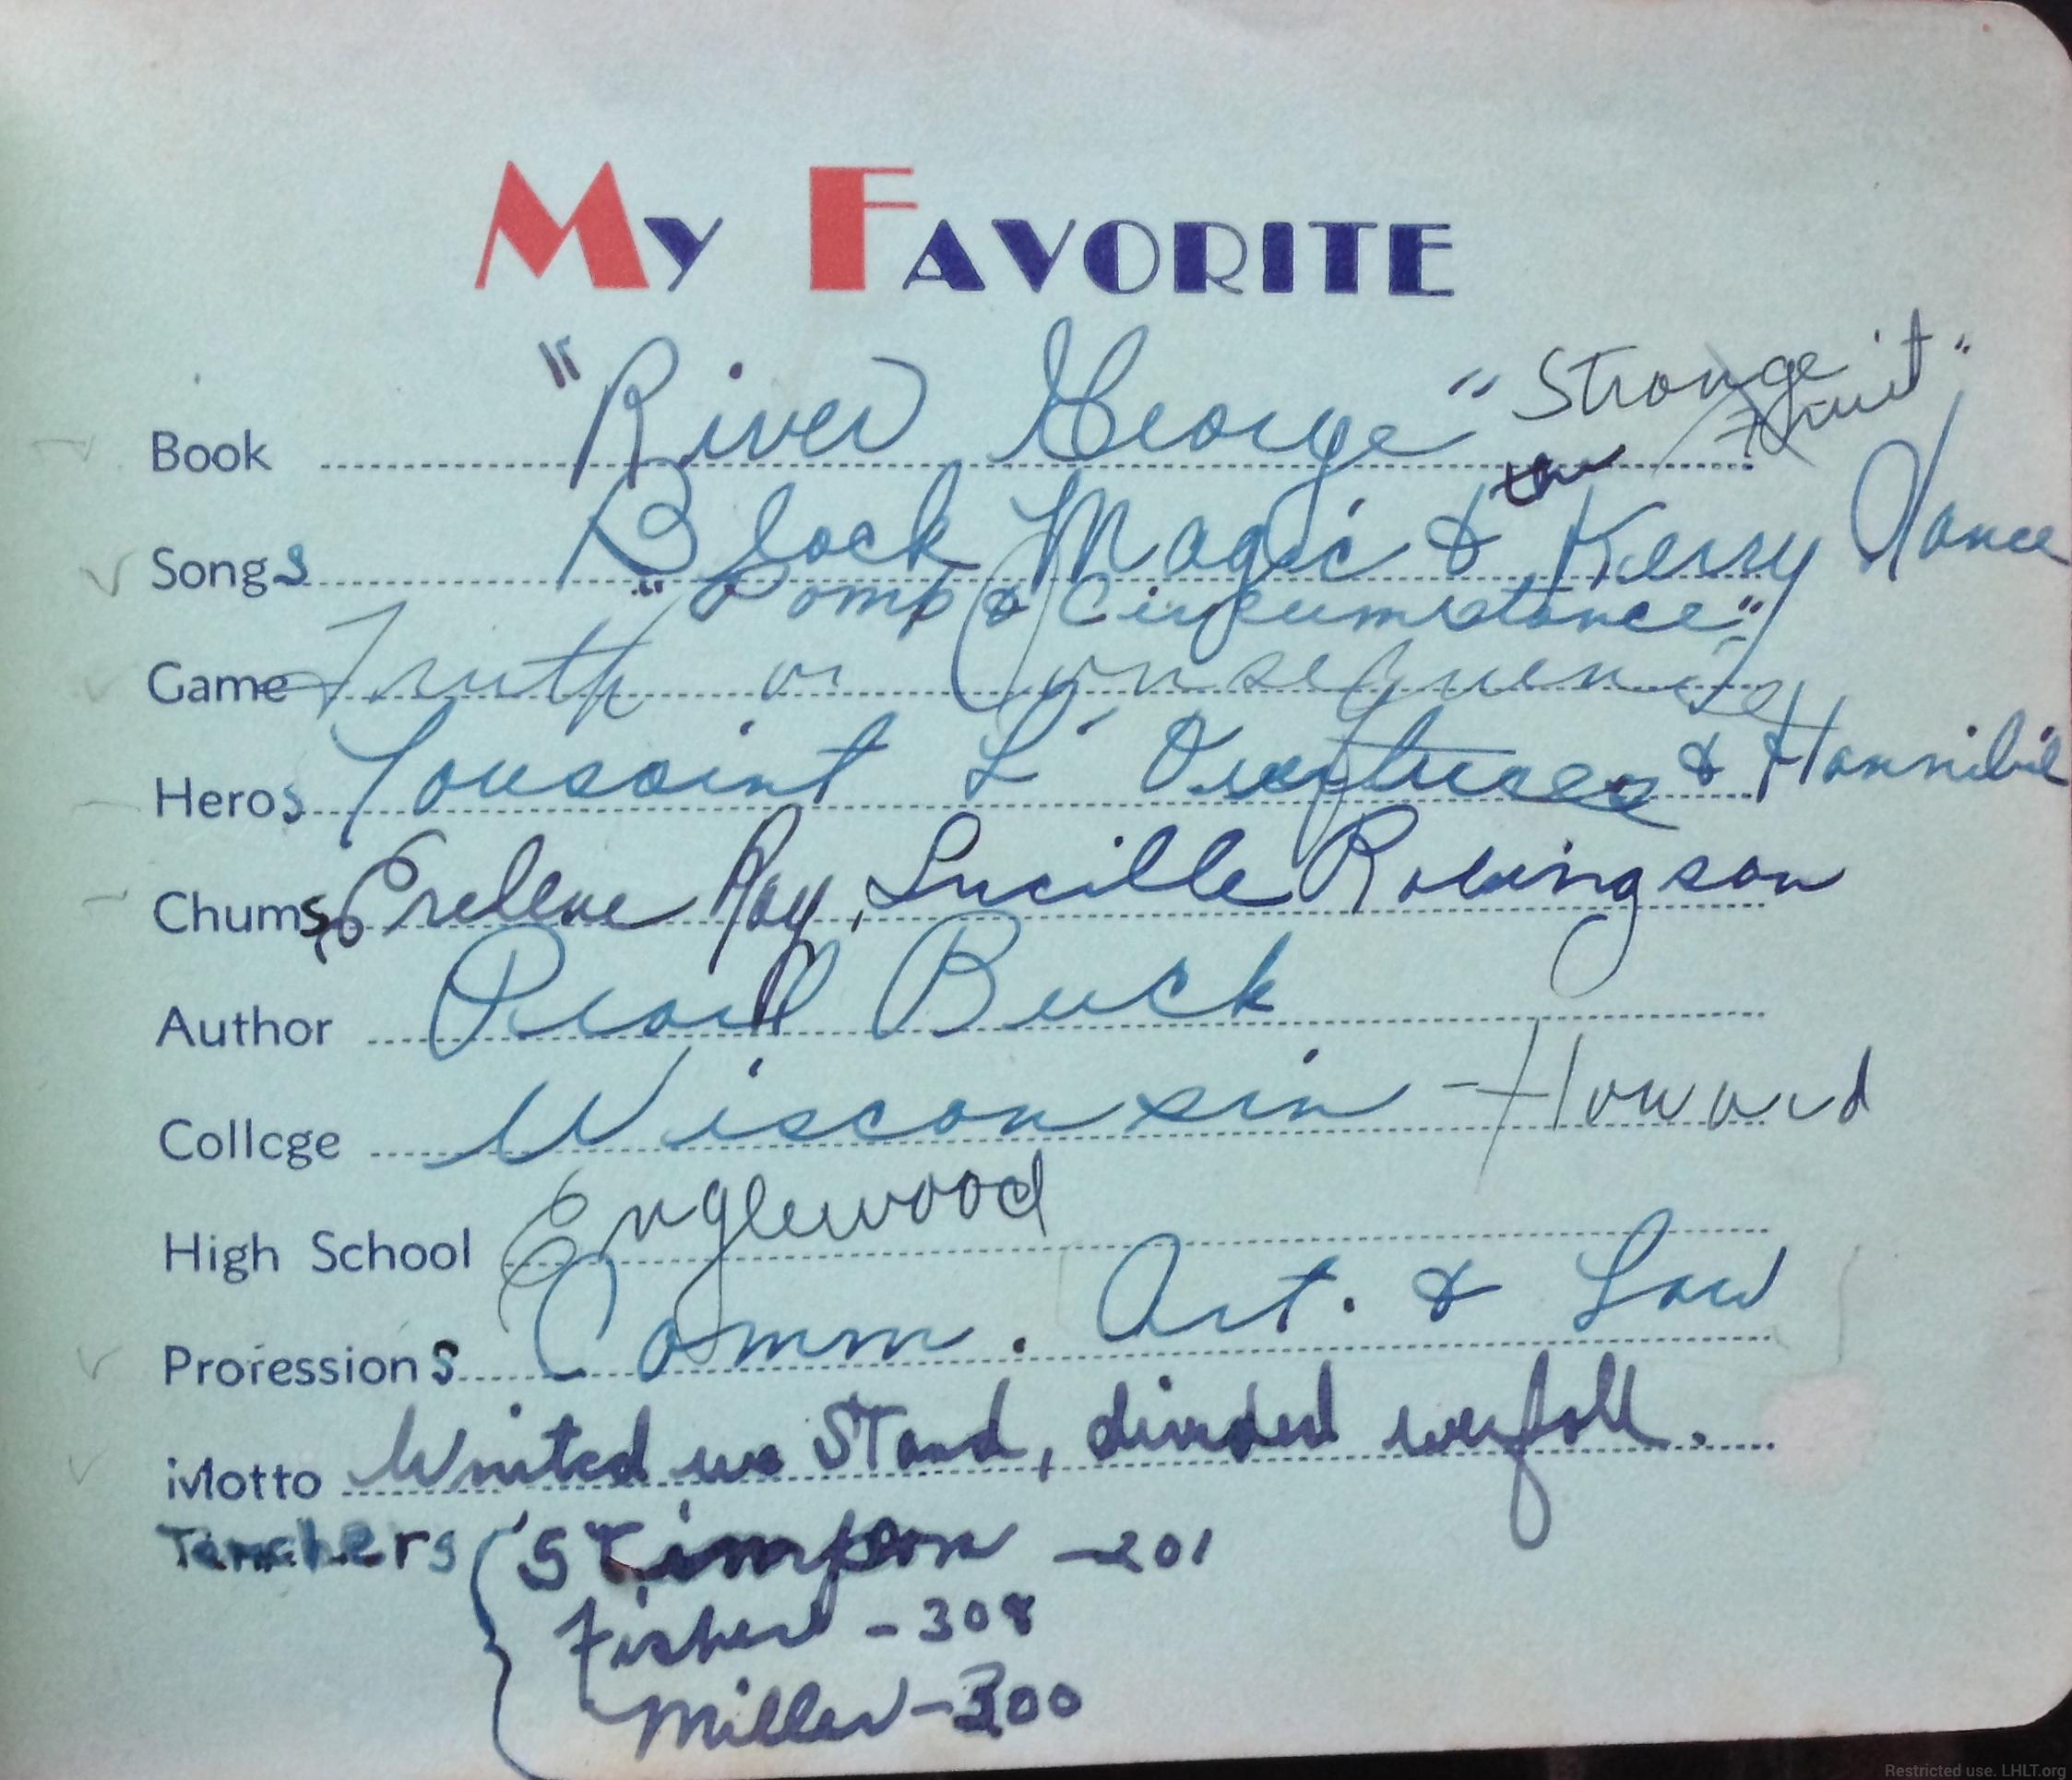 MY FAVORITE
Book "River George" "Strange Fruit"
Songs Black Magic & Kerry Dance
"Pomp & Circumstance"
Game Truth or Consequence
Heros Toussaint L'Ouvertures & Hannibal
Chums Erelene Ray, Lucille Robingson
Author Pearl Buck
College Wisconsin - Howard
High School Englewood
Professions Comm. Art. & Law
Motto United we Stand, divided we fall.
Teachers Stimpson - 201
Fisher - 308
Miller - 300
Restricted use. LHLT.org